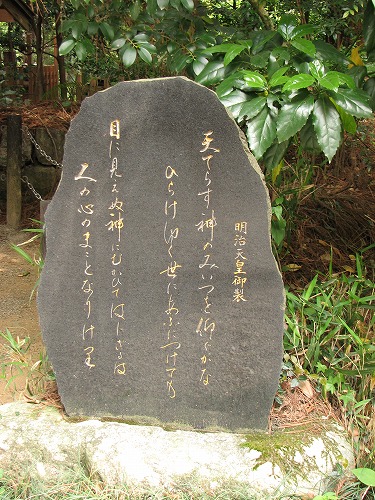 明治天皇御製
天てらす神のみいつを仰ぐかな
ひらけゆく世にあふにつけても
目に見えぬ神にむかひてはぢざるは
人の心のまことなりけり